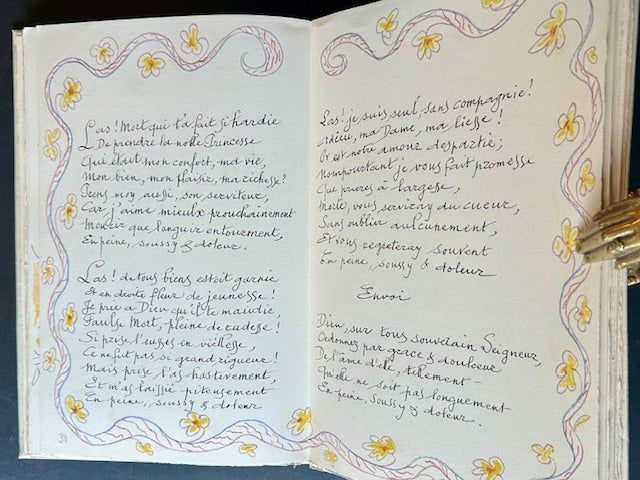 Las! Mort qui t'a fait si hardie
De prendre la noble Princesse
Qui était mon confort, ma vie,
Mon bien, mon plaisir, ma richesse?
Prens moy aussi, son serviteur,
Car j'aime mieulx prouchainement
Mourir que languir en tourment,
En peine, soussy & doleur.
Las! de tous biens estoit garnie
Et en droite fleur de jeunesse!
Je prie à Dieu qu'il te maudie,
Faulse Mort, pleine de rudesse!
Si prise l'eusses en vieillesse,
Ce ne fut pas si grand rigueur!
Mais prise l'as hastivement,
Et m'as laissié piteusement
En peine, soussy & doleur
38
Las! je suis seul, sans compagnie!
Adieu, ma Dame, ma liesse!
Or est notre amour departie;
Nompourtant je vous fait promesse
Que prieres à largesse,
Morte, vous serviray du cueur,
Sans oublier aulcunement,
Et vous regeteray souvent
En peine, soussy & doleur
Envoi
Dieu, sur tous souverain Seigneur,
Ordonnez par grace & doulceur
De l'âme d'elle, tellement
Qu'elle ne soit pas longuement
En peine, soussy & doleur.